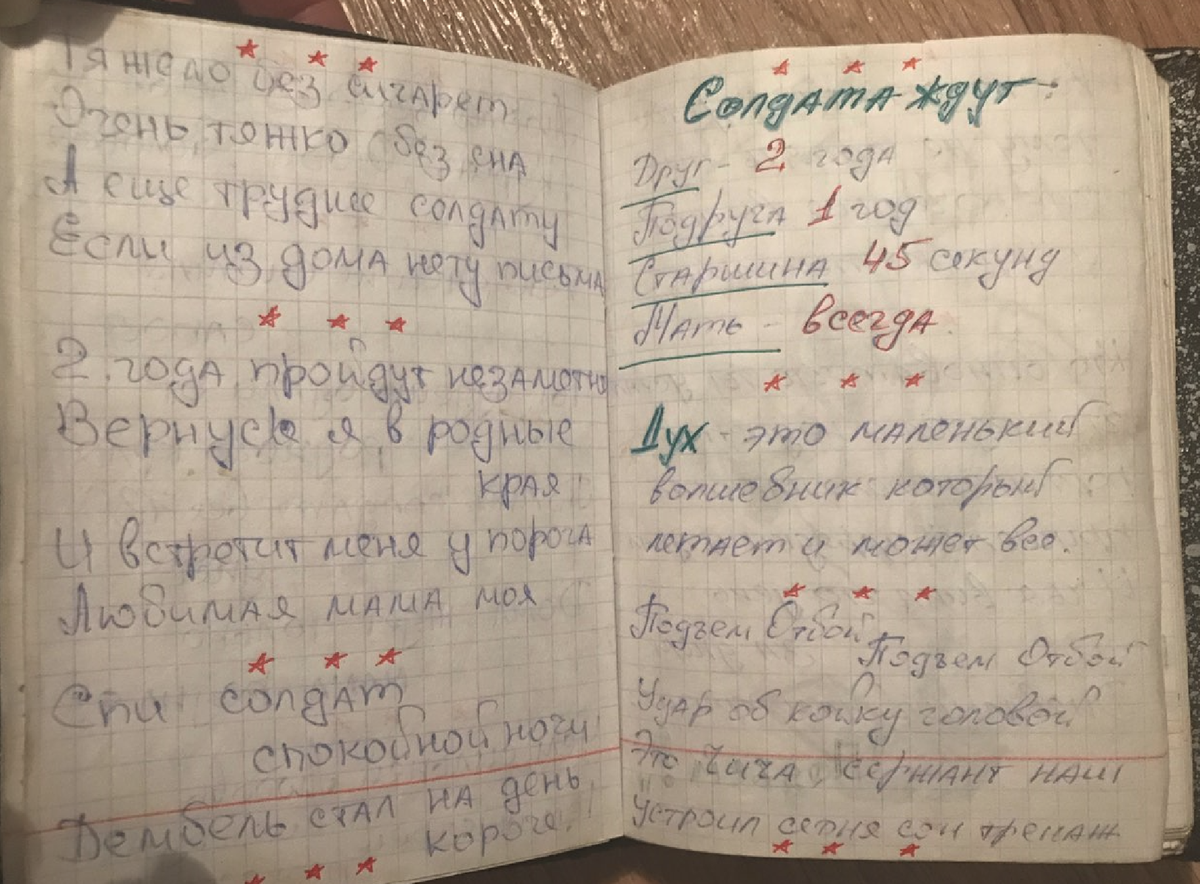 Тяжело без сигарет
Очень тяжко без сна
А еще труднее солдату
Если из дома нету письма
2 года пройдут незаметно
Вернуся я в родные
края
И встретит меня у порога
Любимая мама моя
Спи солдат
спокойной ночи
Дембель стал на день
короче!
Солдата ждут
Друг - 2 года
Подруга 1 год
Старшина 45 секунд
Мать - всегда.
Дух - это маленький
волшебник который
летает и может все.
Подъем Отбой
Подъем Отбой
Удар об койку головой
Это сержант наш
Устроил сон тренаж